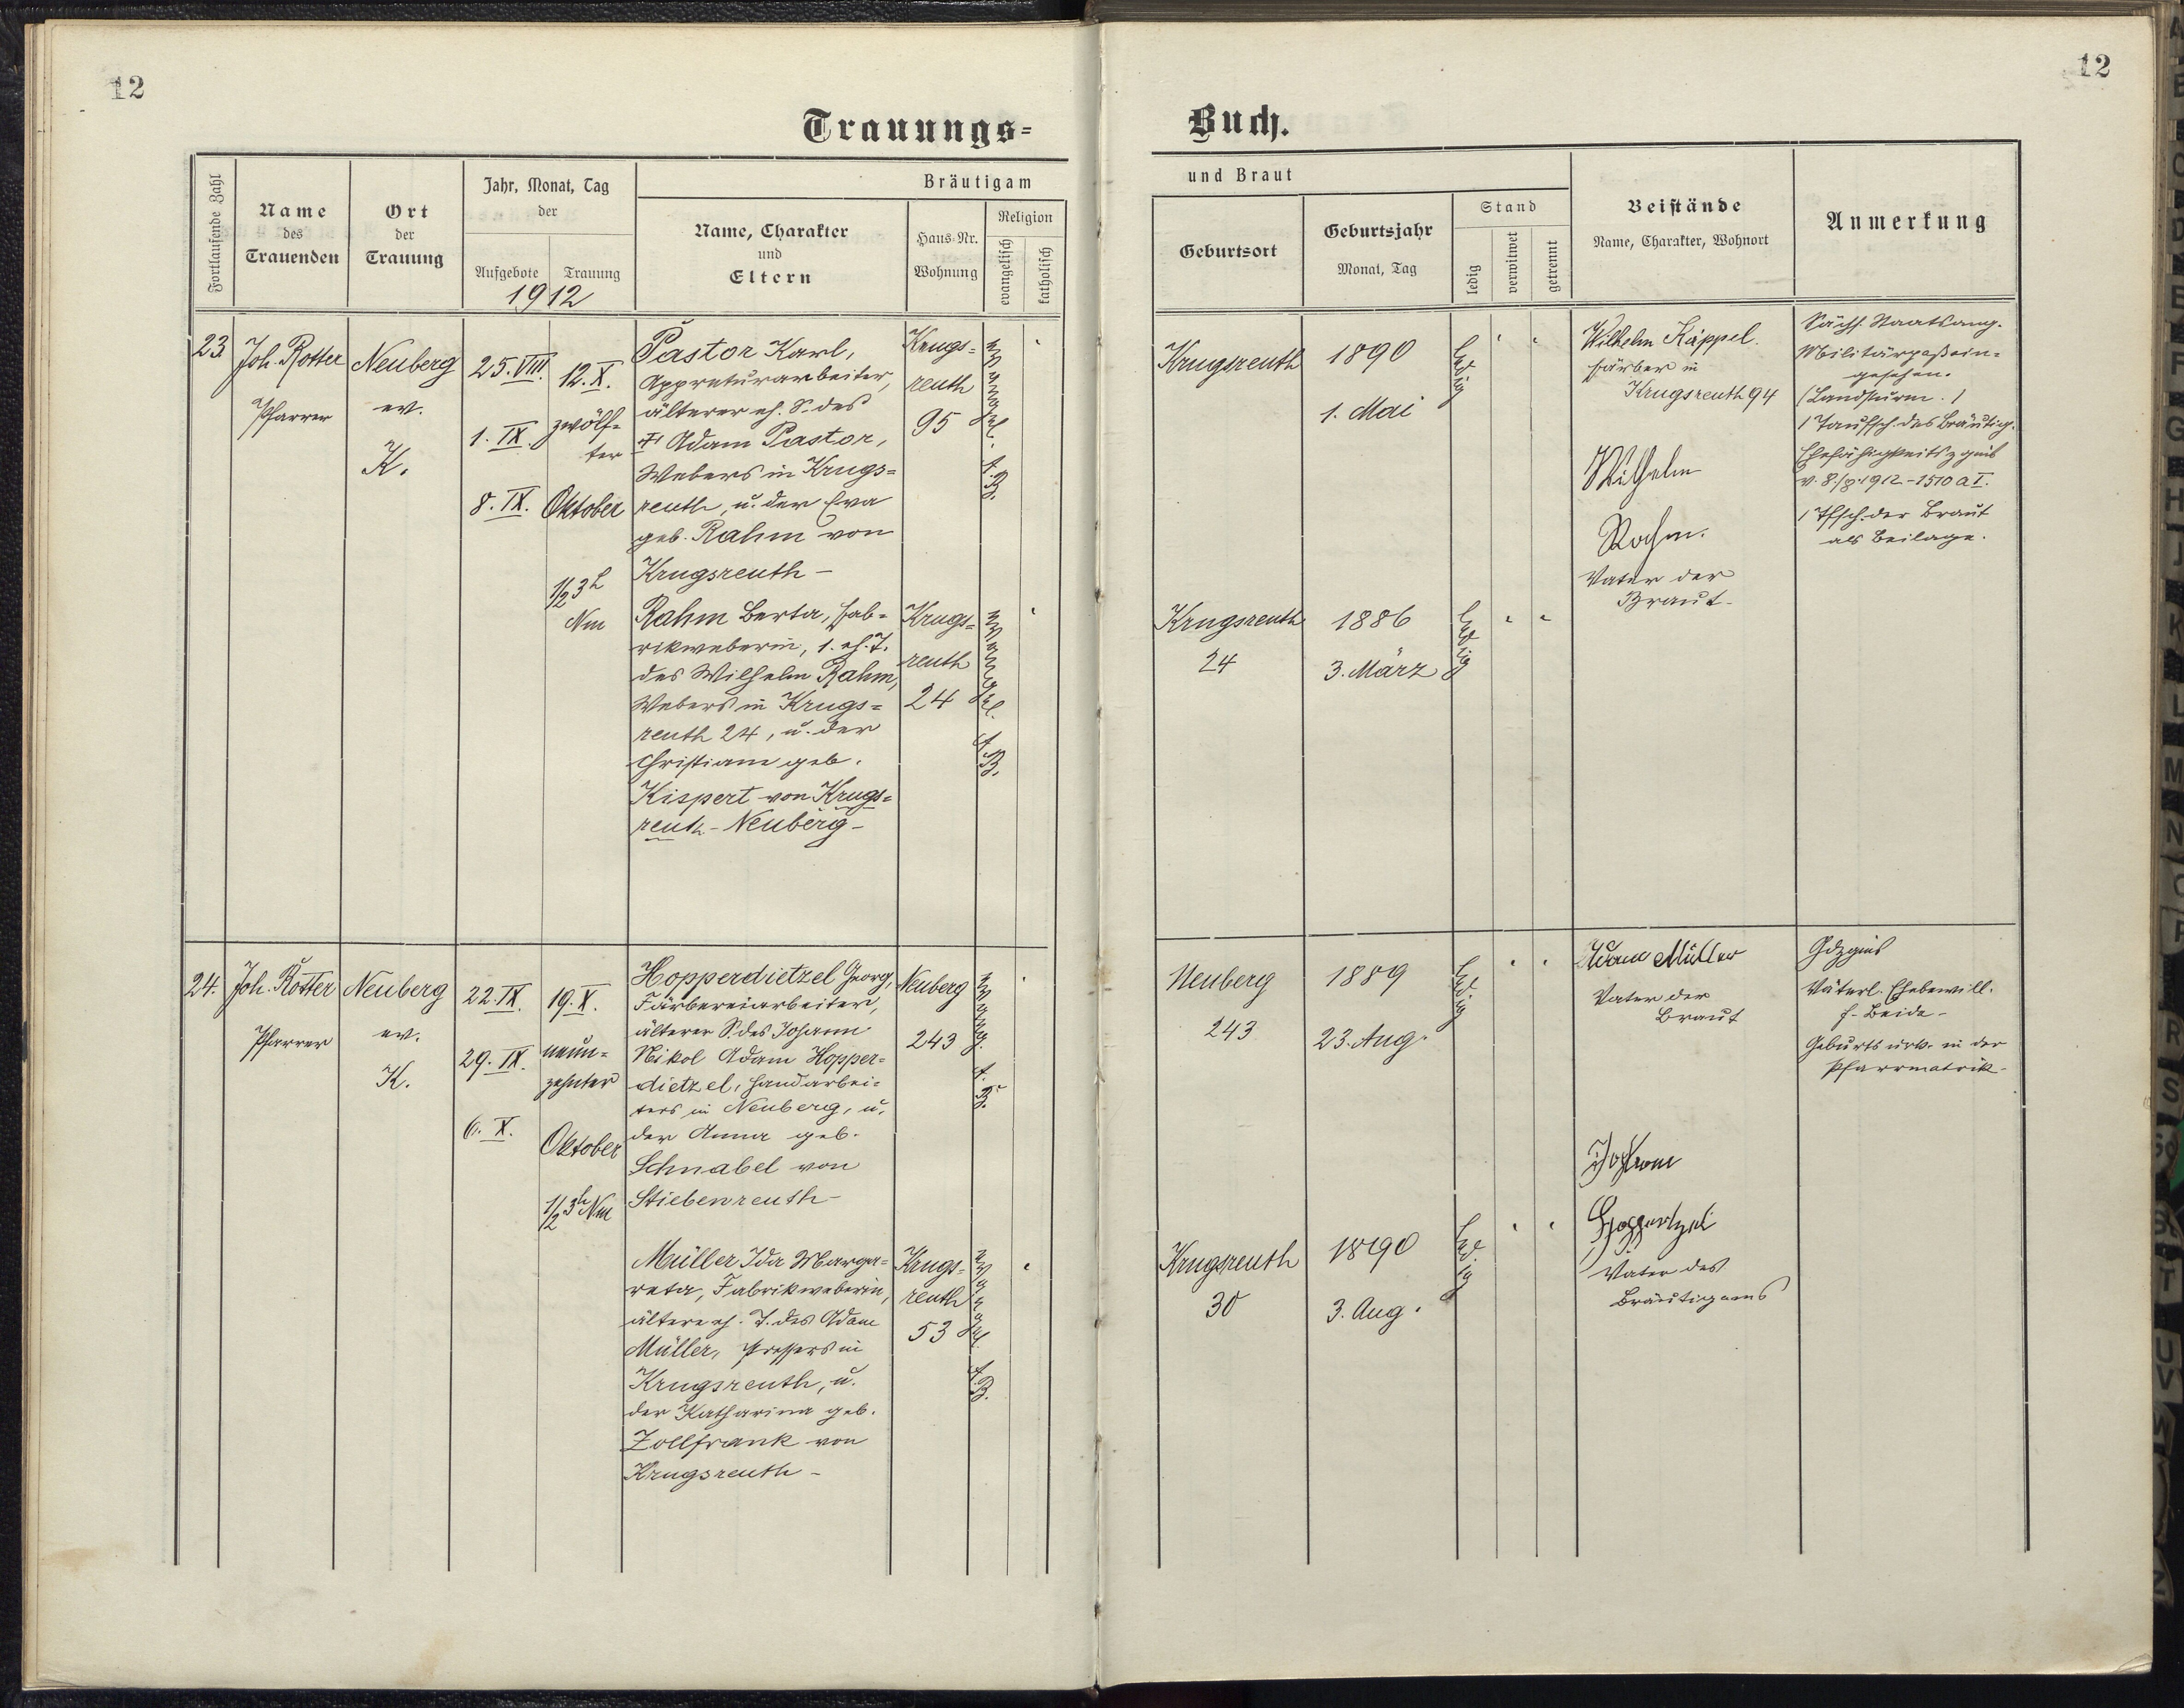 12
Trauungs=
Fortlaufende Zahl
Name
des
Trauenden
Ort
der
Trauung
Jahr, Monat, Tag
der
Aufgebote
Trauung
1912
Bräutigam
Name, Charakter
und
Eltern
Haus-Nr.
Wohnung
Religion
evangelisch
katholisch
23.
Joh. Rotter
Pfarrer
Neuberg
ev.
K.
25. VIII.
1. IX.
8. IX.
12. X.
zwölf=
ter
Oktober
1/2 3 h
Nm
Pastor Karl,
Appreturarbeiter,
älterer eh. S. des
Adam Pastor,
Webers in Krugs=
reuth, u. der Eva
geb. Rahm von
Krugsreuth –
Krugs=
reuth
95
evangel.
A.
B.
Rahm Berta, Fab=
rikweberin, 1. eh. T.
des Wilhelm Rahm,
Webers in Krugs=
reuth 24, u. der
Christiane geb.
Kispert von Krugs=
reuth – Neuberg –
Krugs=
reuth
24
evangel.
A.
B.
24.
Joh. Rotter
Pfarrer
Neuberg
ev.
K.
22. IX.
29. IX.
6. X.
19. X.
neun=
zehnter
Oktober
1/2 3 h Nm
Hopperdietzel Georg,
Färbereiarbeiter,
älterer S. des Johann
Nikol Adam Hopper=
dietzel, Handarbei=
ters in Neuberg, u.
der Anna geb.
Schnabel von
Stiebenreuth –
Neuberg
243
evang.
A.
B.
Müller Ida Marga=
reta, Fabrikweberin,
ältere eh. T. des Adam
Müller, Pressers in
Krugsreuth, u.
der Katharina geb.
Zollfrank von
Krugsreuth –
Krugs=
reuth
53
evangel.
A.
B.
12
Buch.
und Braut
Geburtsort
Geburtsjahr
Monat, Tag
Stand
ledig
verwitwet
getrennt
Beistände
Name, Charakter, Wohnort
Anmerkung
Krugsreuth
1890
1. Mai
ledig
Wilhelm Käppel.
Färber in
Krugsreuth 94
Wilhelm
Rahm.
Vater der
Braut.
Sächs. Staatsang.
Militärpaß ein=
gesehen.
(Landsturm.)
1 Taufsch. des Bräutig.
Ehefähigkeitszgnis
v. 8./8. 1912 – 1510 a I.
1 Tfsch. der Braut
als Beilage.
Krugsreuth
24
1886
3. März
ledig
Neuberg
243
1889
23. Aug.
ledig
Adam Müller
Vater der
Braut
Väterl. Ehebewill.
f. Beide –
Geburtsurk. in der
Pfarrmatrik.
Johann
Vater des
Bräutigams
Krugsreuth
30
1890
3. Aug.
ledig